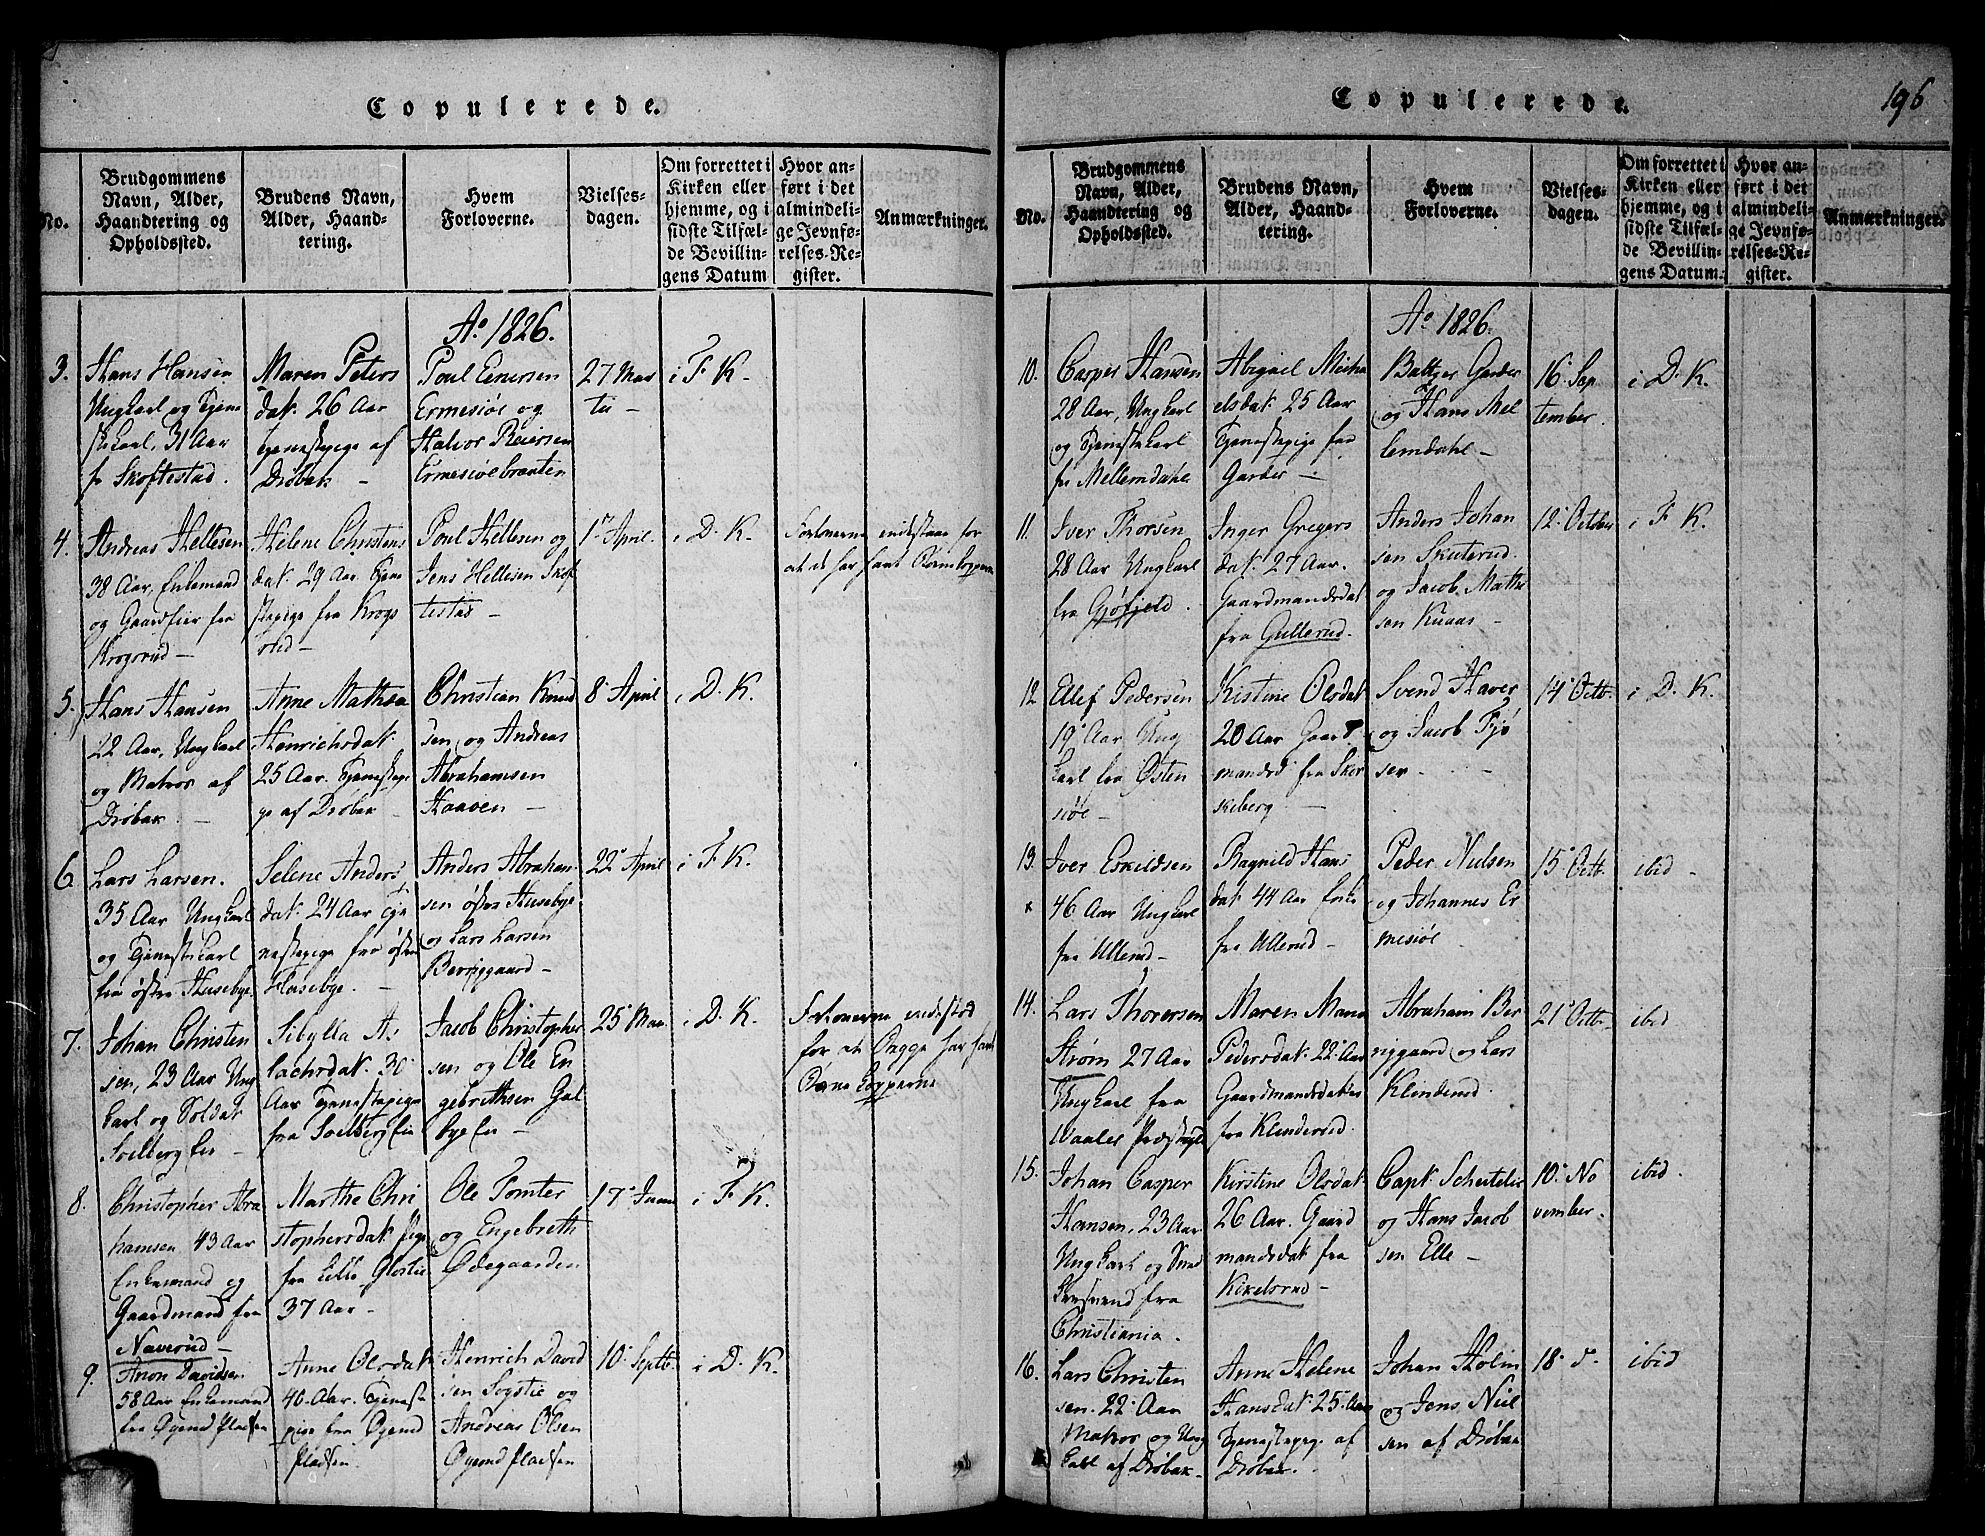 Copulerede.
No.
Brudgommens
Navn, Alder,
Haandtering og
Opholdssted.
Brudens Navn,
Alder, Haand-
tering.
Hvem
Forloverne.
Vielses-
dagen.
Om forrettet i
Kirken eller
hjemme, og i
sidste Tilfæl-
de Bevillin-
gens Datum
Hvor an-
ført i det
almindeli-
ge Jevnfø-
relses-Re-
gister.
Anmærkninger.
Ao 1826.
3.
Hans Hansen
Ungkarl og Tjene
stekarl, 31 Aar
fr Skoftestad.
Maren Peters
dat. 26 Aar
Tjenestepige af
Drøbak –
Poul Enersen
Ermesiøe og
Halvor Reiersen
Ermesiøebraaten
27 Mar
tii –
i F. K.
4.
Andreas Hellesen
38 Aar, Enkemand
og Gaardeier fra
Krogsrud –
Helene Christens
dat. 29 Aar Tjene
stepige fra Krogs
rud –
Poul Hellesen og
Jens Hellesen Skof
testad –
1 April.
i D. K.
Forloverne indestaae for
at de har havt Børnekopperne
5.
Hans Hansen
22 Aar, Ungkarl
og Matros af
Drøbak –
Anne Mathea
Henrichsdat.
25 Aar. Tjenestepi
ge af Drøbak –
Christian Knud
sen og Andreas
Abrahamsen
Haaven –
8 April
i D. K.
6.
Lars Larsen.
35 Aar Ungkarl
og Tjenestekarl
fra østre Husebye.
Selene Anders
dat. 24 Aar Tje
nestepige fra østre
Husebye. –
Anders Abraham
sen østre Husebye
og Lars Larsen
Berggaard –
22 April
i F. K.
7.
Johan Christen
sen, 23 Aar Ung
karl og Soldat
Solberg Eie –
Sibylla As
lachsdat. 30
Aar Tjenestepige
fra Solberg Eie
Jacob Christopher
sen og Ole En
gebrethsen Gal
bye Eie –
25 Mai
i D. K.
Forloverne indestod
for at Begge har havt
Børnekopperne
8.
Christopher Abra
hamsen 43 Aar
Enkemand og
Gaardmand fra
Naverud –
Marthe Chri
stophersdat. Pige
fra Lille Glostie
37 Aar –
Ole Tomter
og Engebreth
Ødegaarden
17 Junii
i F. K.
9.
Aron Davidsen
58 Aar Enkemand
fra Øjerud Pladsen
Anne Olsdat.
40 Aar. Tjeneste
pige fra Øjerud
Pladsen.
Henrich David
sen Sogstie og
Andreas Olsen
Øyerud Pladsen
10 Septb.
i D. K.
Copulerede.
196
No.
Brudgommens
Navn, Alder,
Haandtering og
Opholdssted.
Brudens Navn,
Alder, Haand-
tering.
Hvem
Forloverne.
Vielses-
dagen.
Om forrettet i
Kirken eller
hjemme, og i
sidste Tilfæl-
de Bevillin-
gens Datum.
Hvor an-
ført i det
almindeli-
ge Jevnfø-
relses-Re-
gister.
Anmærkninger.
Ao 1826.
10.
Casper Hansen
28 Aar, Ungkarl
og Tjenestekarl
fr Mellemdahl
Abigael Micha
elsdat. 25 Aar
Tjenestepige fra
Garder –
Baltzer Garder
og Hans Mel
lemdahl –
16 Sep
tember.
i D. K.
11.
Iver Thorsen
28 Aar Ungkarl
fra Gjøfjeld.
Inger Gregers
dat. 27 Aar.
Gaardmandsdat
fra Gullerud.
Anders Johan
sen Skuterud.
og Jacob Mathi
sen Knaas –
12 October
i F. K.
12
Ellef Pedersen
19 Aar Ung
karl fra Østen
siøe –
Kistine Olsdat
20 Aar Gaard
mandsd fra Skor
skeberg –
Svend Haver
og Jacob Fjø
ser. –
14 Octb.
i D. K.
13.
x
Iver Eskildsen
46 Aar Ungkarl
fra Ullerud –
Ragnild Hans
dat. 44 Aar
fra Ullerud –
Peder Nielsen
og Johannes Er
mesiøe –
15 Octb.
ibid –
14.
Lars Thoresen
Strøm 27 Aar
Ungkarl fra
Waaler Præstegjeld
Maren Maria
Pedersdat. 22 Aar
Gaardmandsdatter
fra Klinderud.
Abraham Ber
ggaard og Lars
Klinderud.
21 Octb.
ibid.
15.
Johan Casper
Hansen, 23 Aar
Ungkarl og Sned
kersvend fra
Christiania.
Kirstine Olsdat.
26 Aar. Gaard
mandsdat fra
Kixelsrud –
Capt. Scheitelie
og Hans Jacob
sen Elle –
10. No
vember.
ibid.
16.
Lars Christen
sen. 22 Aar
Matros og Ung
karl af Drøbak –
Anne Helene
Hansdat. 25 Aar
Tjenestepige af
Drøbak. –
Johan Holm
og Jens Niel
sen af Drøbak
18 d.
ibid